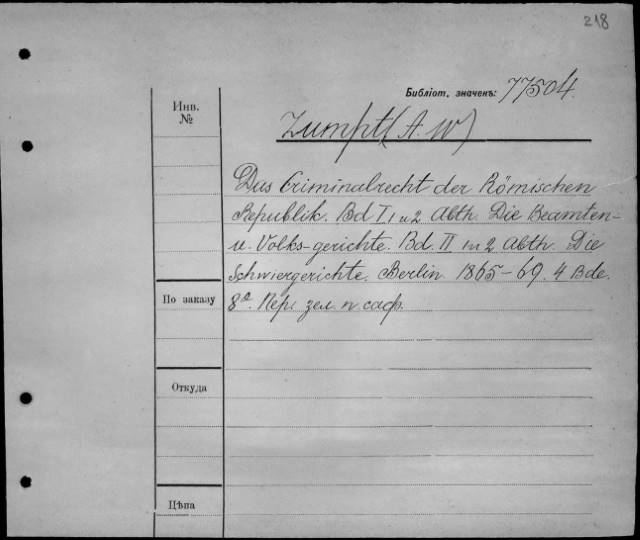 218
Библіот. значекъ: 77504.
Инв.
№
Zumpt (A. W)
Das Criminalrecht der Römischen
Republik. Bd I, 1 u 2 Abth. Die Beamten-
u. Volks-gerichte. Bd. II 1 u 2 Abth. Die
Schwiergerichte. Berlin. 1865-69. 4 Bde.
По заказу
8º. Пер. зел. п. саф.
Откуда
Цѣна